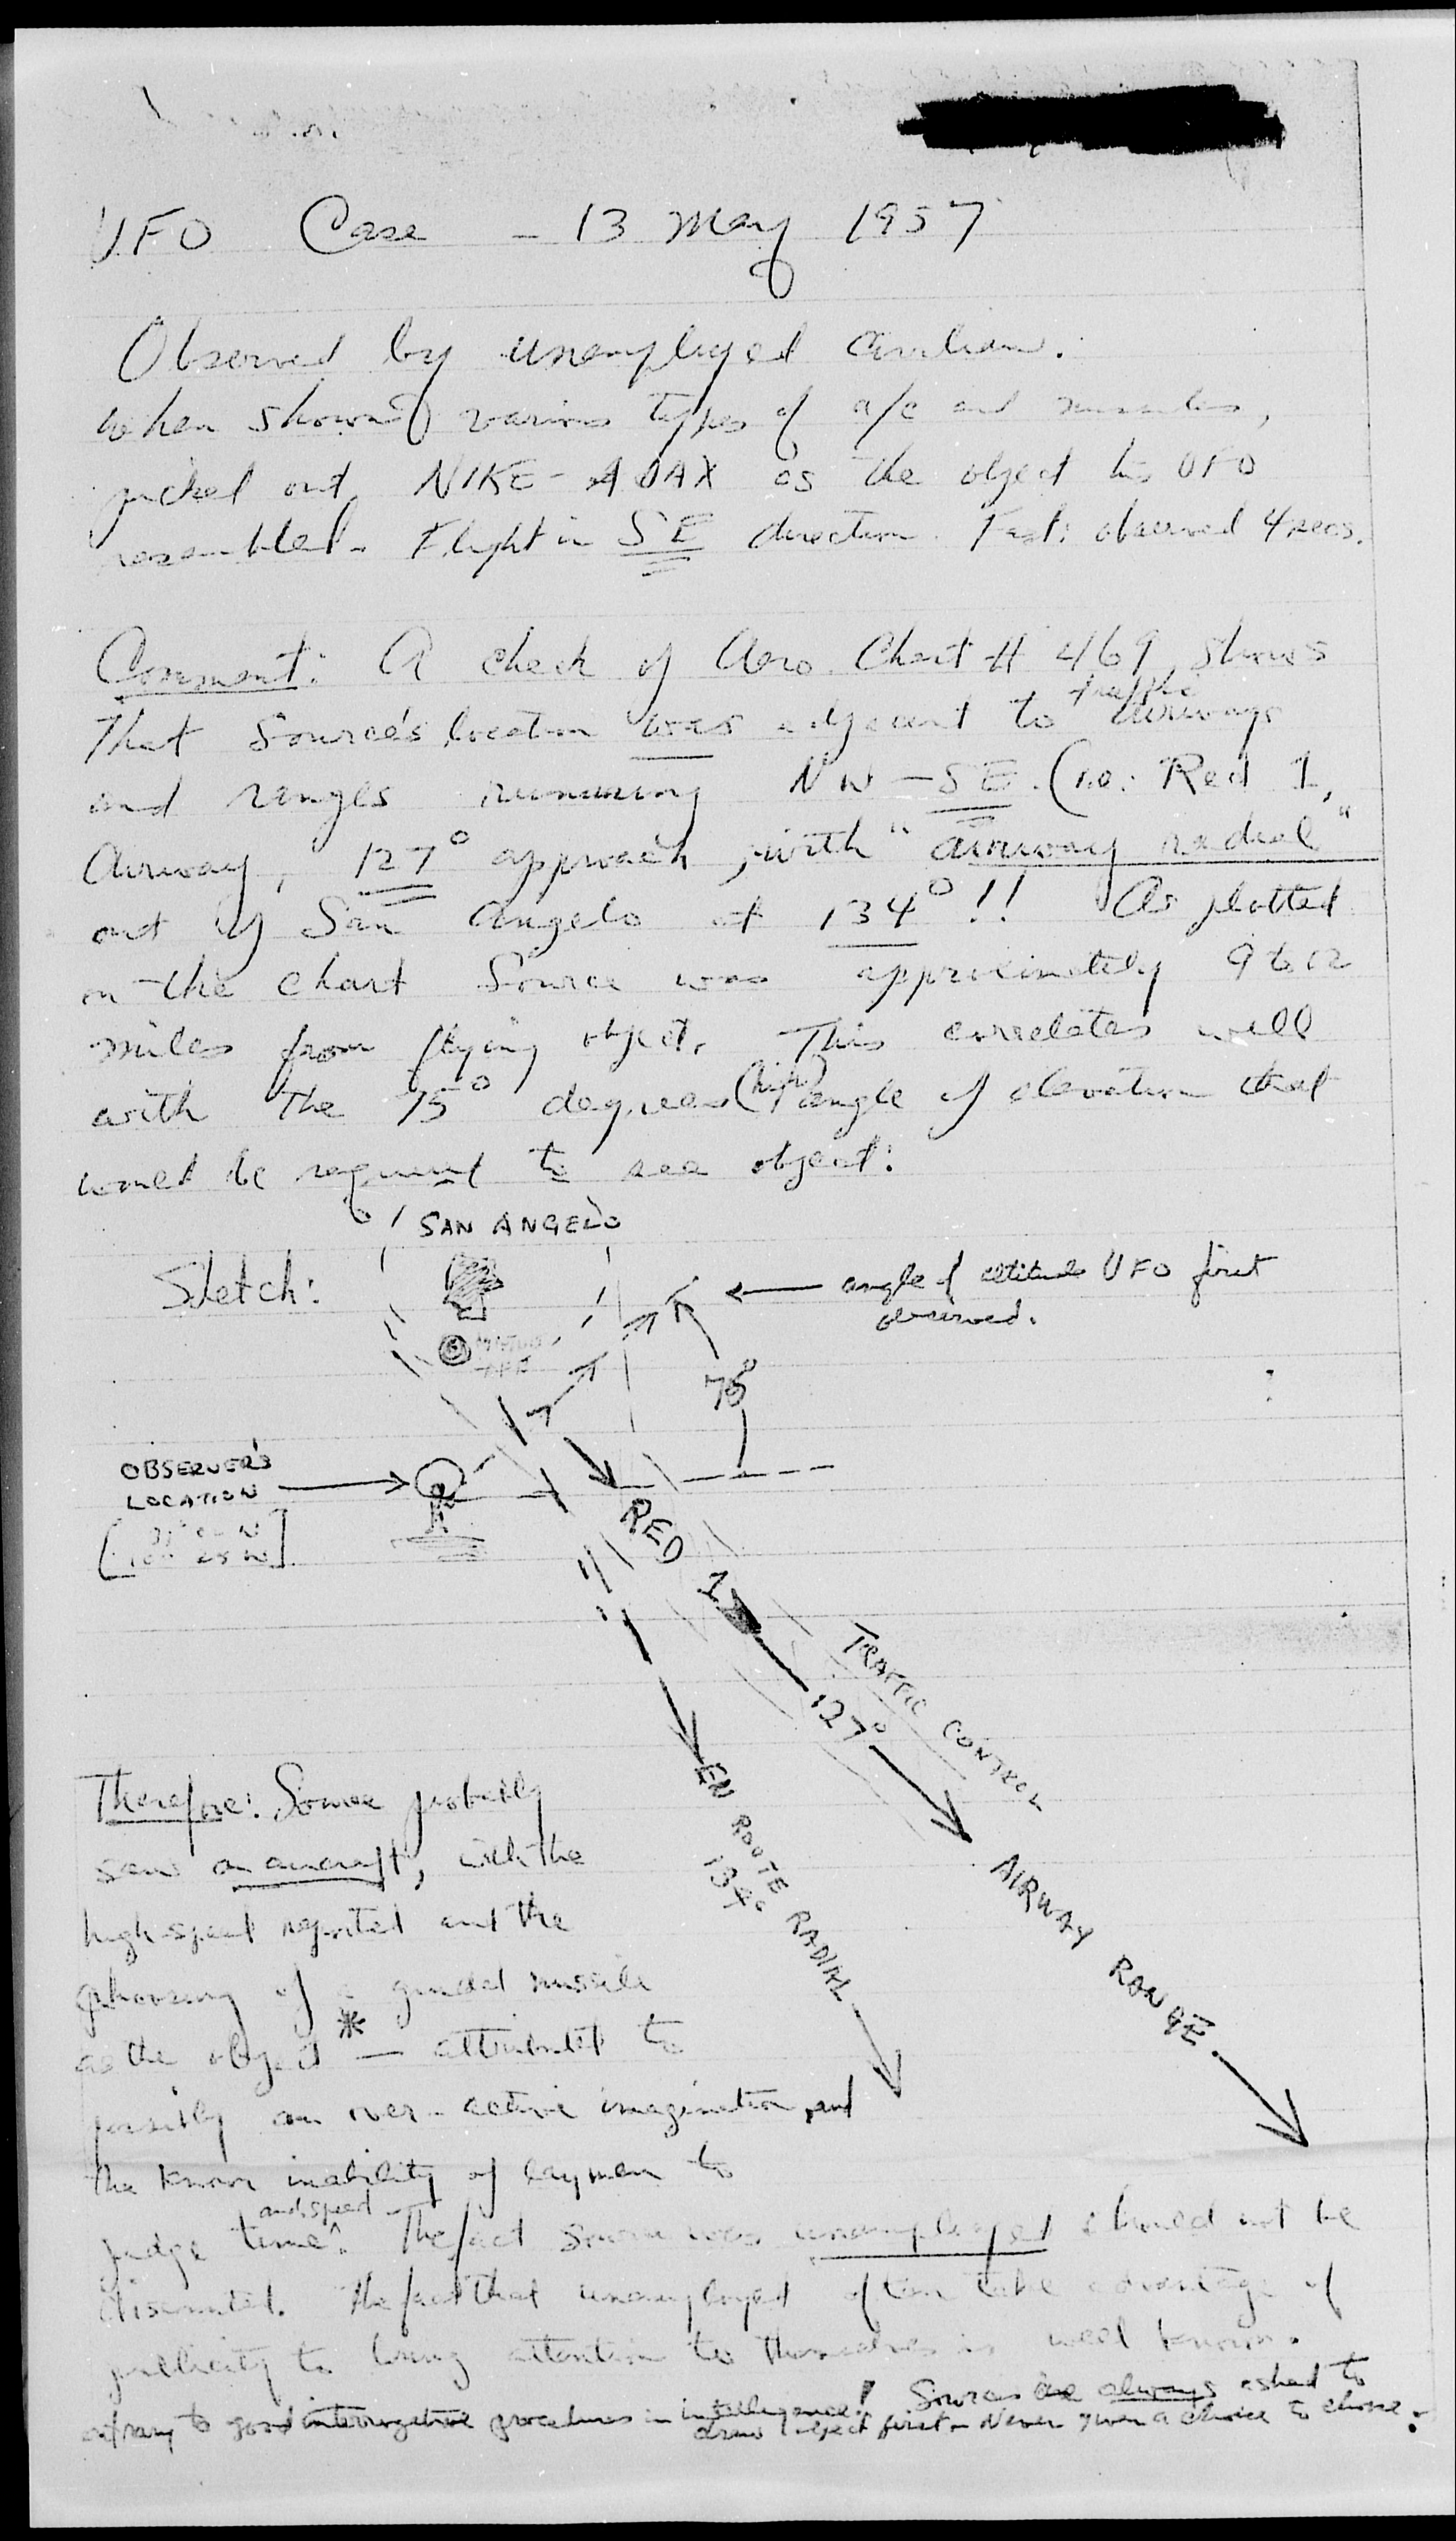 UFO Case - 13 May 1957
Observed by unemployed civilian.
When shown various types of a/c and missiles,
picked out NIKE-AJAX as the object his UFO
resembled. Flight in SE direction. Fast: observed 4 secs.
Comment: A check of Aero. Chart # 469, shows
That Source's location was adjacent to traffic airways
and ranges running NW-SE. (i.e: Red 1,
Airway, 127° approach, with "airway radial"
out of San Angelo at 134°!! As plotted
on the chart Source was approximately 9 to 12
miles from flying object. This correlates well
with the 75° degrees (high) angle of elevation that
would be required to see object:
SAN ANGELO
Sketch:
← angle of altitude UFO first
observed.
75°
OBSERVER'S
LOCATION
RED 1
127°
TRAFFIC CONTROL
AIRWAY RANGE
EN ROUTE RADIAL
134°
Therefore: Source probably
saw an aircraft, with the
high speed reported and the
choosing of a guided missile
as the object * — attributed to
possibly an over-active imagination, and
the known inability of laymen to
judge time and speed. The fact source was unemployed should not be
discounted. The fact that unemployed often take advantage of
publicity to bring attention to themselves is well known.
contrary to good interrogative procedures in intelligence! Sources are always asked to
draw object first. Never given a choice to choose.